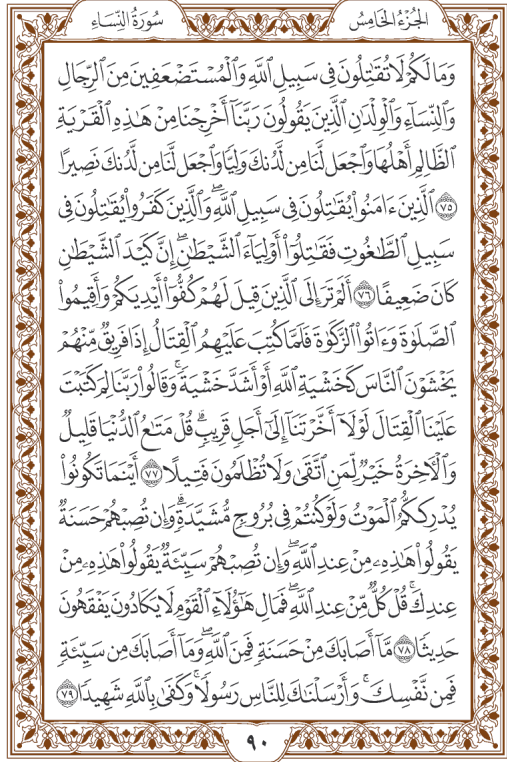 الجُزْءُ الخَامِسُ
سُورَةُ النِّسَاءِ
وَمَا لَكُمْ لَا تُقَٰتِلُونَ فِى سَبِيلِ ٱللَّهِ وَٱلْمُسْتَضْعَفِينَ مِنَ ٱلرِّجَالِ
وَٱلنِّسَآءِ وَٱلْوِلْدَٰنِ ٱلَّذِينَ يَقُولُونَ رَبَّنَآ أَخْرِجْنَا مِنْ هَٰذِهِ ٱلْقَرْيَةِ
ٱلظَّالِمِ أَهْلُهَا وَٱجْعَل لَّنَا مِن لَّدُنكَ وَلِيًّا وَٱجْعَل لَّنَا مِن لَّدُنكَ نَصِيرًا
۝٧٥ ٱلَّذِينَ ءَامَنُوا۟ يُقَٰتِلُونَ فِى سَبِيلِ ٱللَّهِ ۖ وَٱلَّذِينَ كَفَرُوا۟ يُقَٰتِلُونَ فِى
سَبِيلِ ٱلطَّٰغُوتِ فَقَٰتِلُوٓا۟ أَوْلِيَآءَ ٱلشَّيْطَٰنِ ۖ إِنَّ كَيْدَ ٱلشَّيْطَٰنِ
كَانَ ضَعِيفًا ۝٧٦ أَلَمْ تَرَ إِلَى ٱلَّذِينَ قِيلَ لَهُمْ كُفُّوٓا۟ أَيْدِيَكُمْ وَأَقِيمُوا۟
ٱلصَّلَوٰةَ وَءَاتُوا۟ ٱلزَّكَوٰةَ فَلَمَّا كُتِبَ عَلَيْهِمُ ٱلْقِتَالُ إِذَا فَرِيقٌ مِّنْهُمْ
يَخْشَوْنَ ٱلنَّاسَ كَخَشْيَةِ ٱللَّهِ أَوْ أَشَدَّ خَشْيَةً ۚ وَقَالُوا۟ رَبَّنَا لِمَ كَتَبْتَ
عَلَيْنَا ٱلْقِتَالَ لَوْلَآ أَخَّرْتَنَآ إِلَىٰٓ أَجَلٍ قَرِيبٍ ۗ قُلْ مَتَٰعُ ٱلدُّنْيَا قَلِيلٌ
وَٱلْءَاخِرَةُ خَيْرٌ لِّمَنِ ٱتَّقَىٰ وَلَا تُظْلَمُونَ فَتِيلًا ۝٧٧ أَيْنَمَا تَكُونُوا۟
يُدْرِككُّمُ ٱلْمَوْتُ وَلَوْ كُنتُمْ فِى بُرُوجٍ مُّشَيَّدَةٍ ۗ وَإِن تُصِبْهُمْ حَسَنَةٌ
يَقُولُوا۟ هَٰذِهِۦ مِنْ عِندِ ٱللَّهِ ۖ وَإِن تُصِبْهُمْ سَيِّئَةٌ يَقُولُوا۟ هَٰذِهِۦ مِنْ
عِندِكَ ۚ قُلْ كُلٌّ مِّنْ عِندِ ٱللَّهِ ۖ فَمَالِ هَٰٓؤُلَآءِ ٱلْقَوْمِ لَا يَكَادُونَ يَفْقَهُونَ
حَدِيثًا ۝٧٨ مَّآ أَصَابَكَ مِنْ حَسَنَةٍ فَمِنَ ٱللَّهِ ۖ وَمَآ أَصَابَكَ مِن سَيِّئَةٍ
فَمِن نَّفْسِكَ ۚ وَأَرْسَلْنَٰكَ لِلنَّاسِ رَسُولًا ۚ وَكَفَىٰ بِٱللَّهِ شَهِيدًا ۝٧٩
٩٠